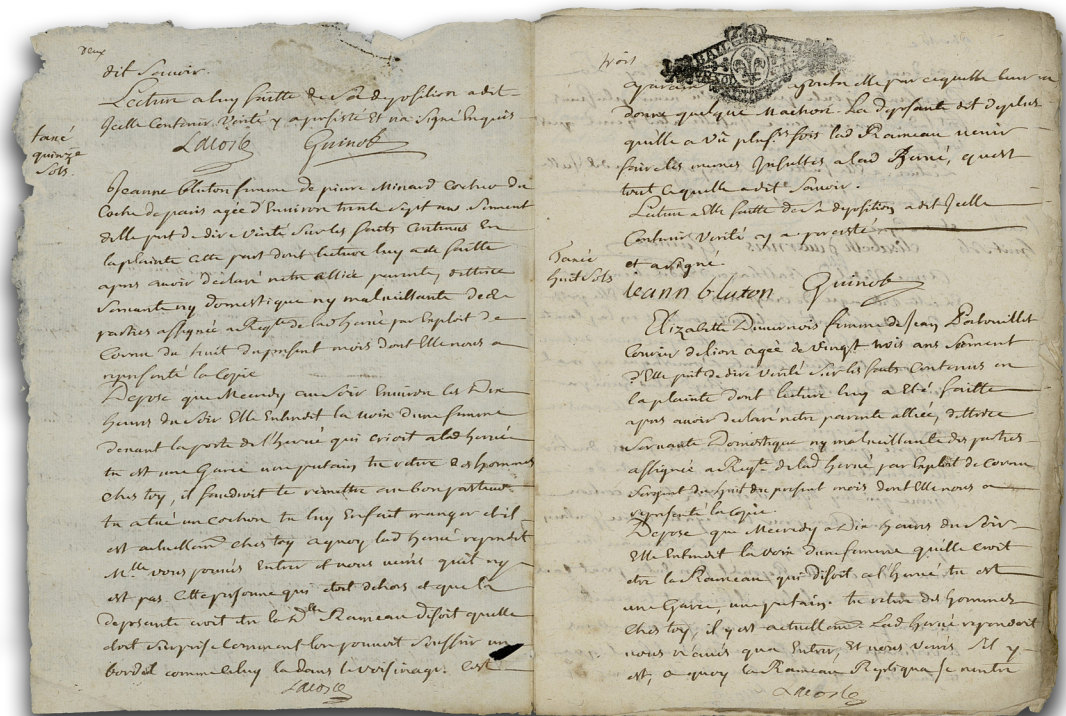 deux
dit Savoir.
Lecture a luy faitte de Sa deposition a dit
Icelle Contenir Verité y a persisté et na Signé Enquis
taxé
quinze
Sols.
Lacoste Guinot
Jeanne bluton femme de pierre Minard Cocher du
Coche de paris agée d'Environ trente Sept ans Serment
delle prit de dire Verité Sur les faits Contenus En
la plainte Cette part dont lecture luy a été faitte
apres avoir declaré nétre alliée parente, dettrice
Servante ny domestique ny malveillante des
parties assignée a Reqte de lad herné par Exploit de
Cornu du huit du présent mois dont Elle nous a
représenté la Copie
Depose que Mecredy au Soir Environ les Dix
heures du Soir Elle Entendit la voix dune femme
devant la porte de l'herné qui crioit a lad herné
tu est une Garce une putain tu retire des hommes
ches toy, il faudroit te remettre au bon pasteur
tu a tué un Cochon tu luy En fait manger et il
est actuellemt ches toy a quoy lad herné repondit
Mlle vous pouvés Entrer et vous verrés quil ny
est pas Cette personne qui étoit dehors et que la
deposante croit être la dlle Rameau disoit quelle
étoit Surprise Comment lon pouvoit Souffrir un
bordel comme Celuy la dans le voisinage. C'est
Lacoste
trois
quelle
donne quelque Machon. La deposante dit de plus
quelle a Vü plusrs fois lad Rameau venir
faire les memes Insultes a lad herné, quest
tout Ce quelle a dit Savoir.
Lecture a Elle faitte de Sa deposition a dit Icelle
Contenir Verité y a persisté
et a Signé.
Taxée
huit Sols
Jeann bluton Guinot
Elizabette femme de Jean
de lion agée de Vingt trois ans Serment
d'Elle prit de dire Verité Sur les faits Contenus en
la plainte dont lecture luy a Eté faitte
apres avoir declaré nétre parente alliée, dettrice
Servante Domestique ny malveillante des parties
assignée a Reqte de lad herné par Exploit de Cornu
Sergent du huit du présent mois, dont Elle nous a
représenté la Copie.
Depose que Mecredy a Dix heures du Soir
Elle Entendit la voix dune femme qu'elle croit
etre la Rameau qui disoit a l'herné tu est
une Garce, une putain. tu retire des hommes
Ches toy, il y est actuellemt. Lad herné repondoit
vous n'avés que Entrer, Et vous verrés Sil y
est, a quoy la Rameau Repliqua je n'entre
Lacoste